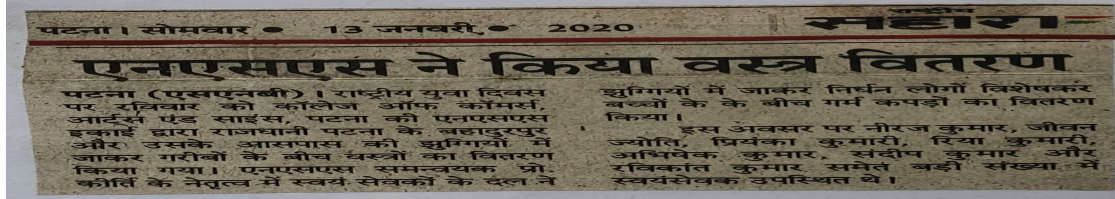 पटना। सोमवार ● 13 जनवरी ● 2020
राष्ट्रीय
सहारा
एनएसएस ने किया वस्त्र वितरण
पटना (एसएनबी)। राष्ट्रीय युवा दिवस
पर रविवार को कॉलेज ऑफ कॉमर्स,
आर्ट्स एंड साइंस, पटना की एनएसएस
इकाई द्वारा राजधानी पटना के बहादुरपुर
और उसके आसपास की झुग्गियों में
जाकर गरीबों के बीच वस्त्रों का वितरण
किया गया। एनएसएस समन्वयक प्रो.
कीर्ति के नेतृत्व में स्वयं सेवकों के दल ने
झुग्गियों में जाकर निर्धन लोगों विशेषकर
बच्चों के के बीच गर्म कपड़ों का वितरण
किया।
इस अवसर पर नीरज कुमार, जीवन
ज्योति, प्रियंका कुमारी, रिया कुमारी,
अभिषेक कुमार, संदीप कुमार और
रविकांत कुमार समेत बड़ी संख्या में
स्वयंसेवक उपस्थित थे।